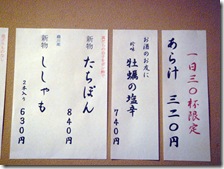 一日三〇杯限定
あら汁 三二〇円
お酒のお友に
珍味
牡蠣の塩辛
７４０円
新物
たちぽん
８４０円
新物
ししゃも
２本入り
６３０円